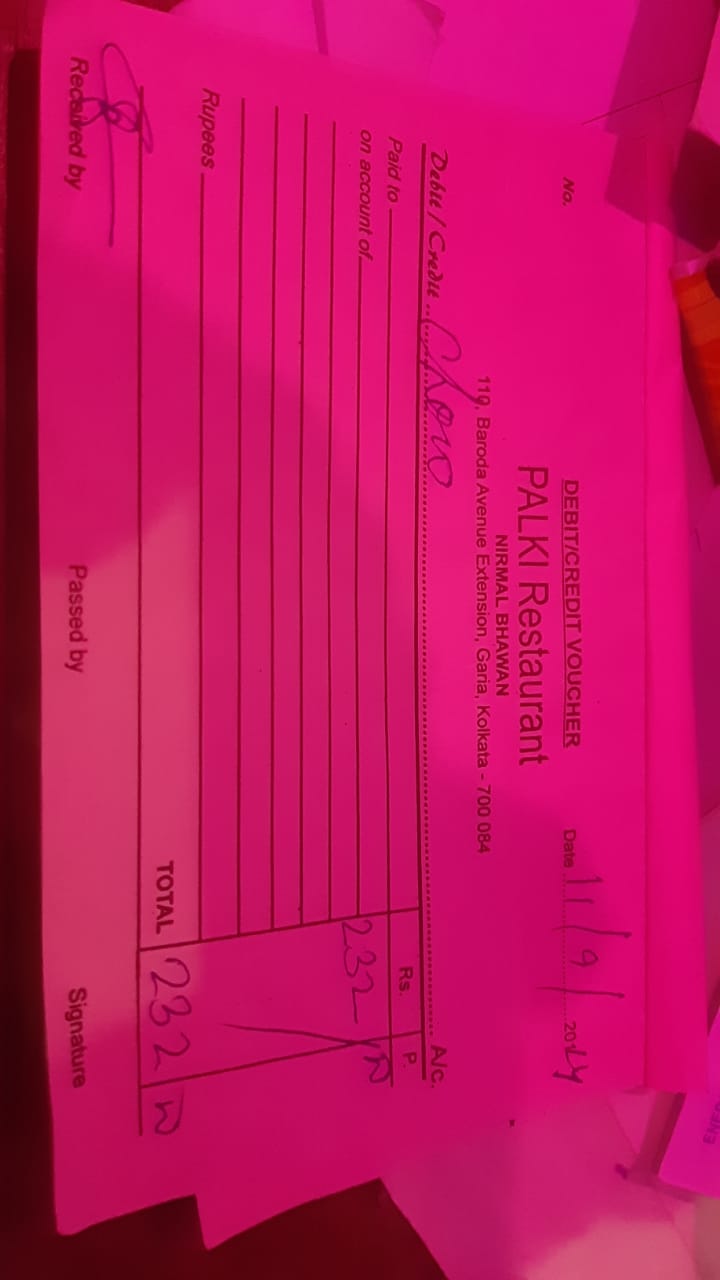 DEBIT/CREDIT VOUCHER
No. Date 11/9/2024
PALKI Restaurant
NIRMAL BHAWAN
119, Baroda Avenue Extension, Garia, Kolkata - 700 084
Debit / Credit Chow A/c.
Paid to Rs. P.
on account of 232
Rupees
TOTAL 232
Received by Passed by Signature